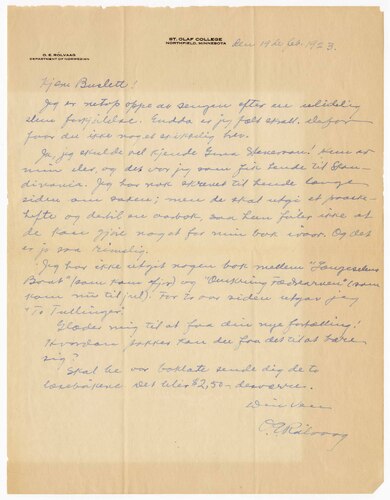 ST. OLAF COLLEGE
NORTHFIELD, MINNESOTA
O. E. ROLVAAG
DEPARTMENT OF NORWEGIAN
Den 19de feb. 1923.
Kjære Buslett!
Jeg er netop oppe av sengen efter en
slem forkjølelse. Endda er jeg
faar du ikke noget ordentlig brev.
Ja, jeg skulde vel kjende Hun er
min elev, og det var jeg som fik sendt til Skan-
dinaven. Jeg har nok skrevet til hende længe
siden om saken; men de skal utgi et
hefte og dertil en aarbok, saa hun tviler ikke
at de kan gjøre noget for min bok ivaar. Og det
er jo saa rimelig.
Jeg har ikke utgit nogen bok mellem "Længselens
Baat" (som kom ifjor) og "Omkring Fædrearven" (som
kom nu til jul). For to aar siden utgav jeg
"To Tullinger."
Glæder mig til at faa din nye fortælling!
Hvordan får du det til at bære
sig?
Skal be vor boklade sende dig de
læsebøkene. Det blir $2.50 – desværre.
Din ven
O. E. Rølvaag